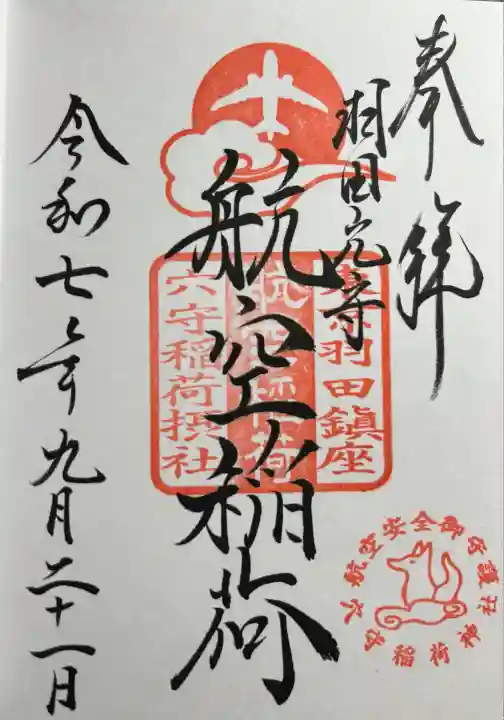 奉拝
羽田穴守
航空稲荷
令和七年九月二十一日
東京羽田鎮座
航空稲荷
穴守稲荷摂社
航空安全御守護
穴守稲荷神社